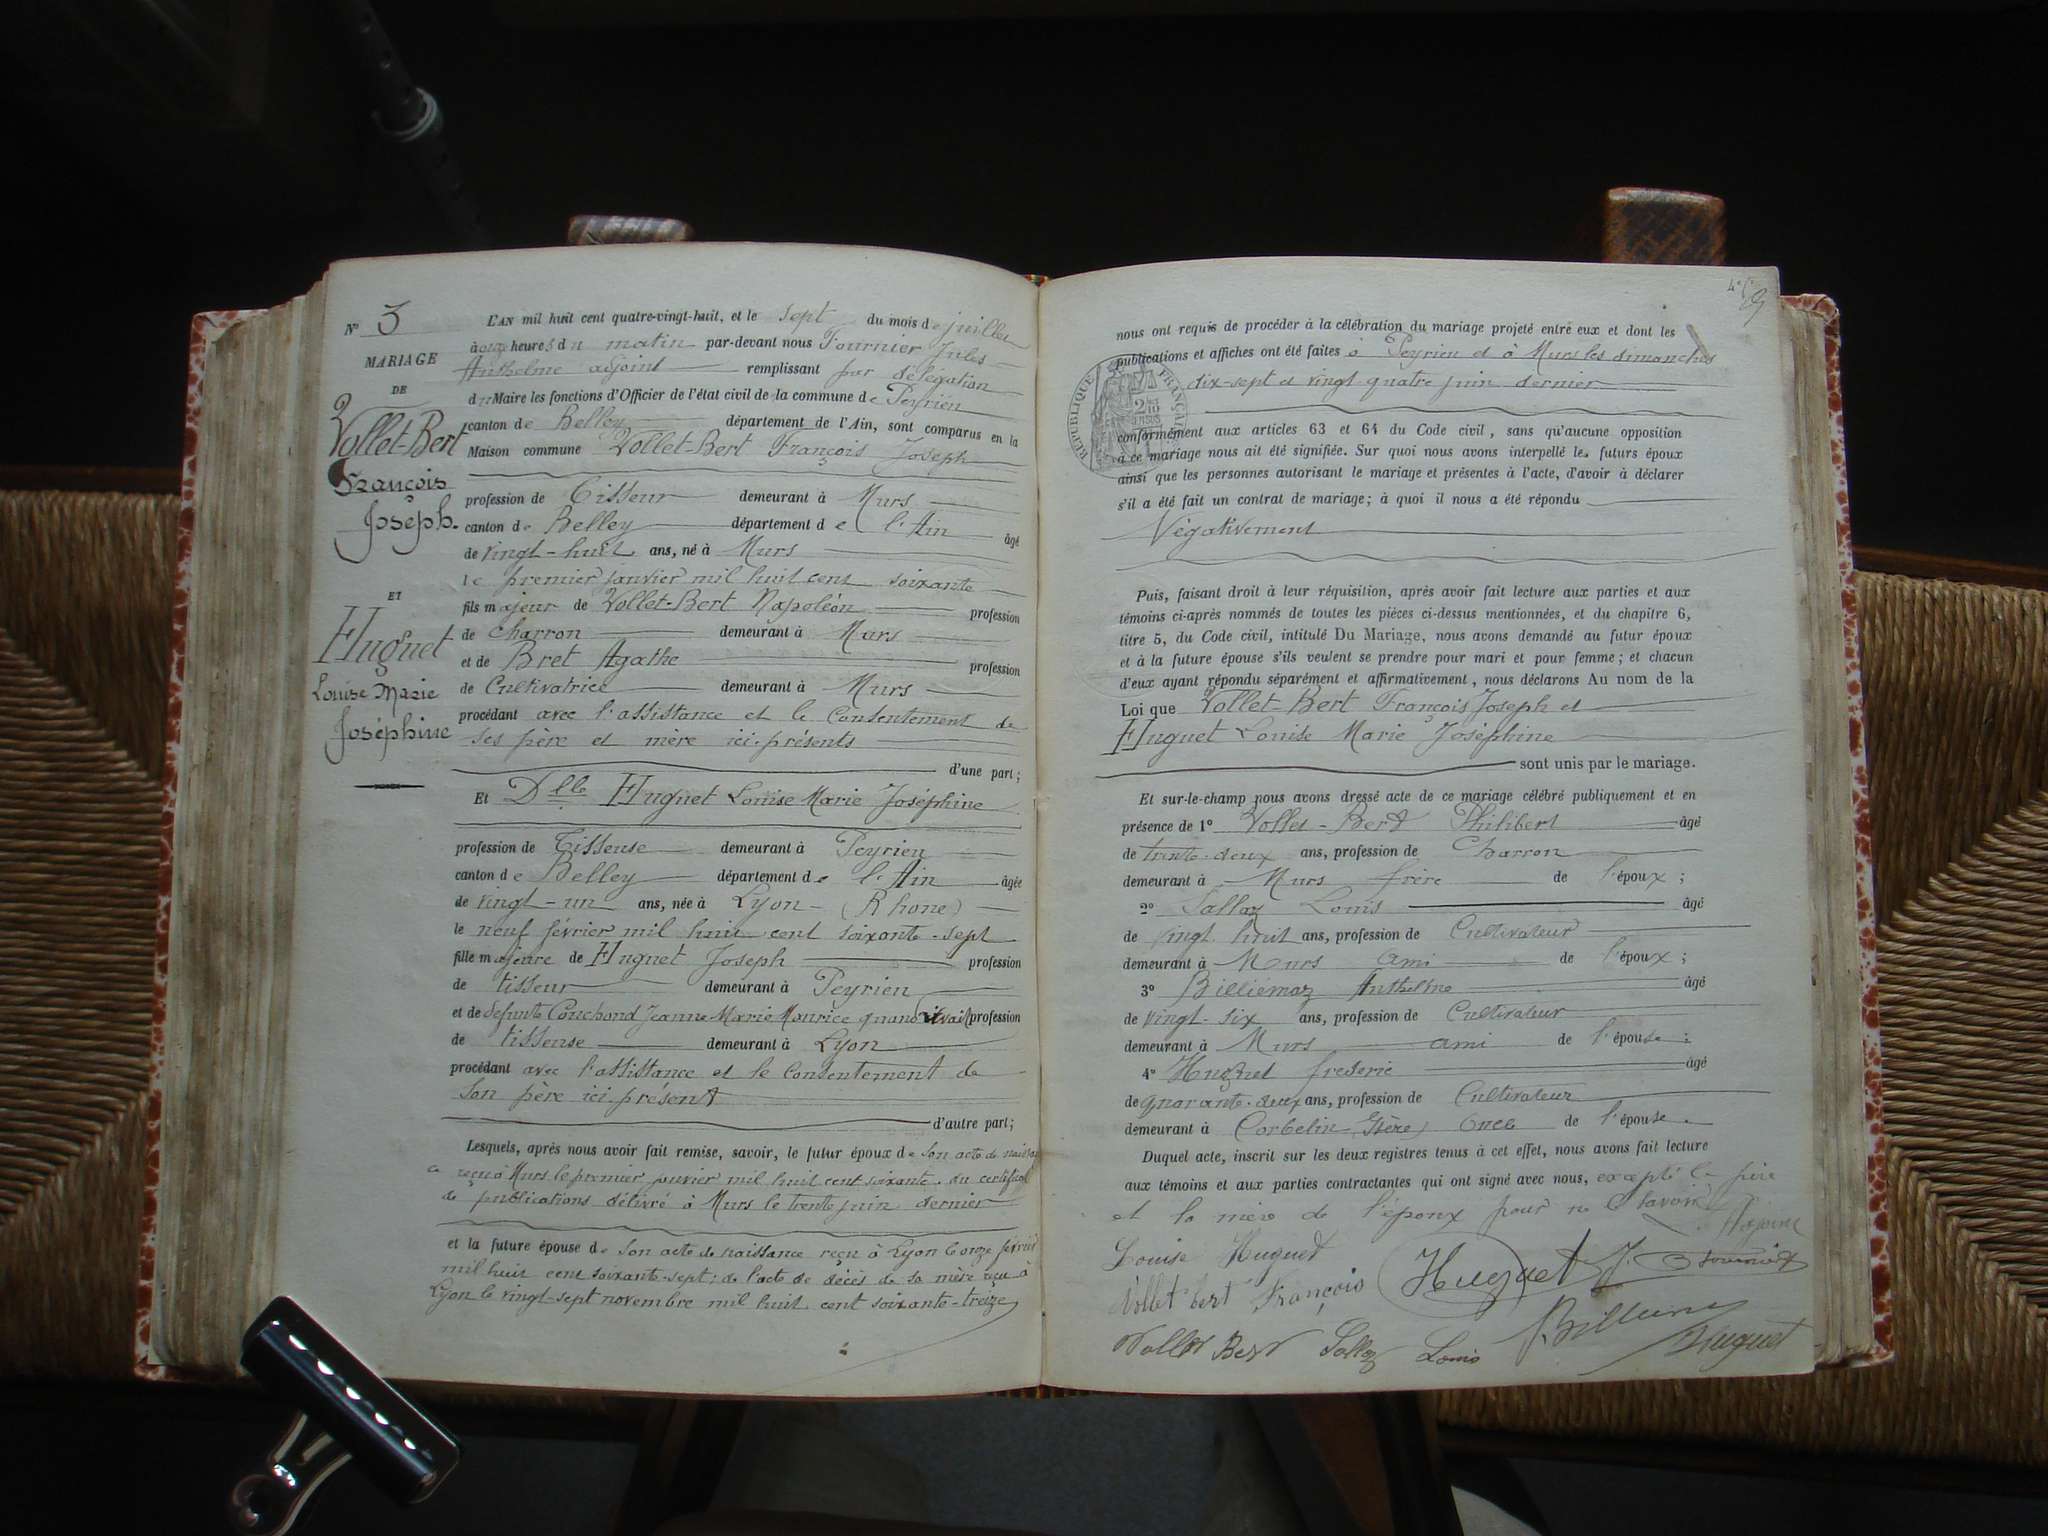 N° 3
MARIAGE
DE
Vollet-Bert
François
Joseph.
ET
Huguet
Louise Marie
Joséphine
L'AN mil huit cent quatre-vingt-huit, et le sept du mois de juillet
à onze heures du matin par-devant nous Fournier Jules
Anthelme adjoint remplissant par délégation
du Maire les fonctions d'Officier de l'état civil de la commune de Peyrieu
canton de Belley département de l'Ain, sont comparus en la
Maison commune Vollet-Bert François Joseph
profession de Tisseur demeurant à Murs
canton de Belley département de l'Ain âgé
de vingt-huit ans, né à Murs
le premier janvier mil huit cent soixante
fils majeur de Vollet-Bert Napoléon profession
de Charron demeurant à Murs
et de Bret Agathe profession
de Cultivatrice demeurant à Murs
procédant avec l'assistance et le Consentement de
ses père et mère ici-présents
d'une part;
Et Dlle Huguet Louise Marie Joséphine
profession de Tisseuse demeurant à Peyrieu
canton de Belley département de l'Ain âgée
de vingt-un ans, née à Lyon (Rhone)
le neuf février mil huit cent soixante-sept
fille majeure de Huguet Joseph profession
de tisseur demeurant à Peyrieu
et de défunte Couchond Jeanne Marie Maurice quand vivait profession
de tisseuse demeurant à Lyon
procédant avec l'assistance et le Consentement de
son père ici-présent
d'autre part;
Lesquels, après nous avoir fait remise, savoir, le futur époux de son acte de naissan
ce reçu à Murs le premier janvier mil huit cent soixante. du certificat
de publications délivré à Murs le trente juin dernier
et la future épouse de son acte de naissance reçu à Lyon le onze février
mil huit cent soixante-sept; de l'acte de décès de sa mère reçu à
Lyon le vingt-sept novembre mil huit cent soixante-treize
nous ont requis de procéder à la célébration du mariage projeté entre eux et dont les
publications et affiches ont été faites à Peyrieu et à Murs les dimanches
dix-sept et vingt quatre juin dernier
RÉPUBLIQUE FRANÇAISE
conformément aux articles 63 et 64 du Code civil, sans qu'aucune opposition
à ce mariage nous ait été signifiée. Sur quoi nous avons interpellé les futurs époux
ainsi que les personnes autorisant le mariage et présentes à l'acte, d'avoir à déclarer
s'il a été fait un contrat de mariage; à quoi il nous a été répondu
Négativement
Puis, faisant droit à leur réquisition, après avoir fait lecture aux parties et aux
témoins ci-après nommés de toutes les pièces ci-dessus mentionnées, et du chapitre 6,
titre 5, du Code civil, intitulé Du Mariage, nous avons demandé au futur époux
et à la future épouse s'ils veulent se prendre pour mari et pour femme; et chacun
d'eux ayant répondu séparément et affirmativement, nous déclarons Au nom de la
Loi que Vollet-Bert François Joseph et
Huguet Louise Marie Joséphine
sont unis par le mariage.
Et sur-le-champ nous avons dressé acte de ce mariage célébré publiquement et en
présence de 1° Vollet-Bert Philibert âgé
de trente-deux ans, profession de Charron
demeurant à Murs frère de l'époux;
2° Sallaz Louis âgé
de vingt huit ans, profession de Cultivateur
demeurant à Murs ami de l'époux;
3° Billiémaz Anthelme âgé
de vingt-six ans, profession de Cultivateur
demeurant à Murs ami de l'épouse;
4° Huguet frederic âgé
de quarante-deux ans, profession de Cultivateur
demeurant à Corbelin (Isère) Oncle de l'épouse.
Duquel acte, inscrit sur les deux registres tenus à cet effet, nous avons fait lecture
aux témoins et aux parties contractantes qui ont signé avec nous, excepté le père
et la mère de l'époux pour ne savoir
Louise Huguet
Vollet bert François Huguet J. Fournier
Vollet Bert Sallaz Louis Huguet